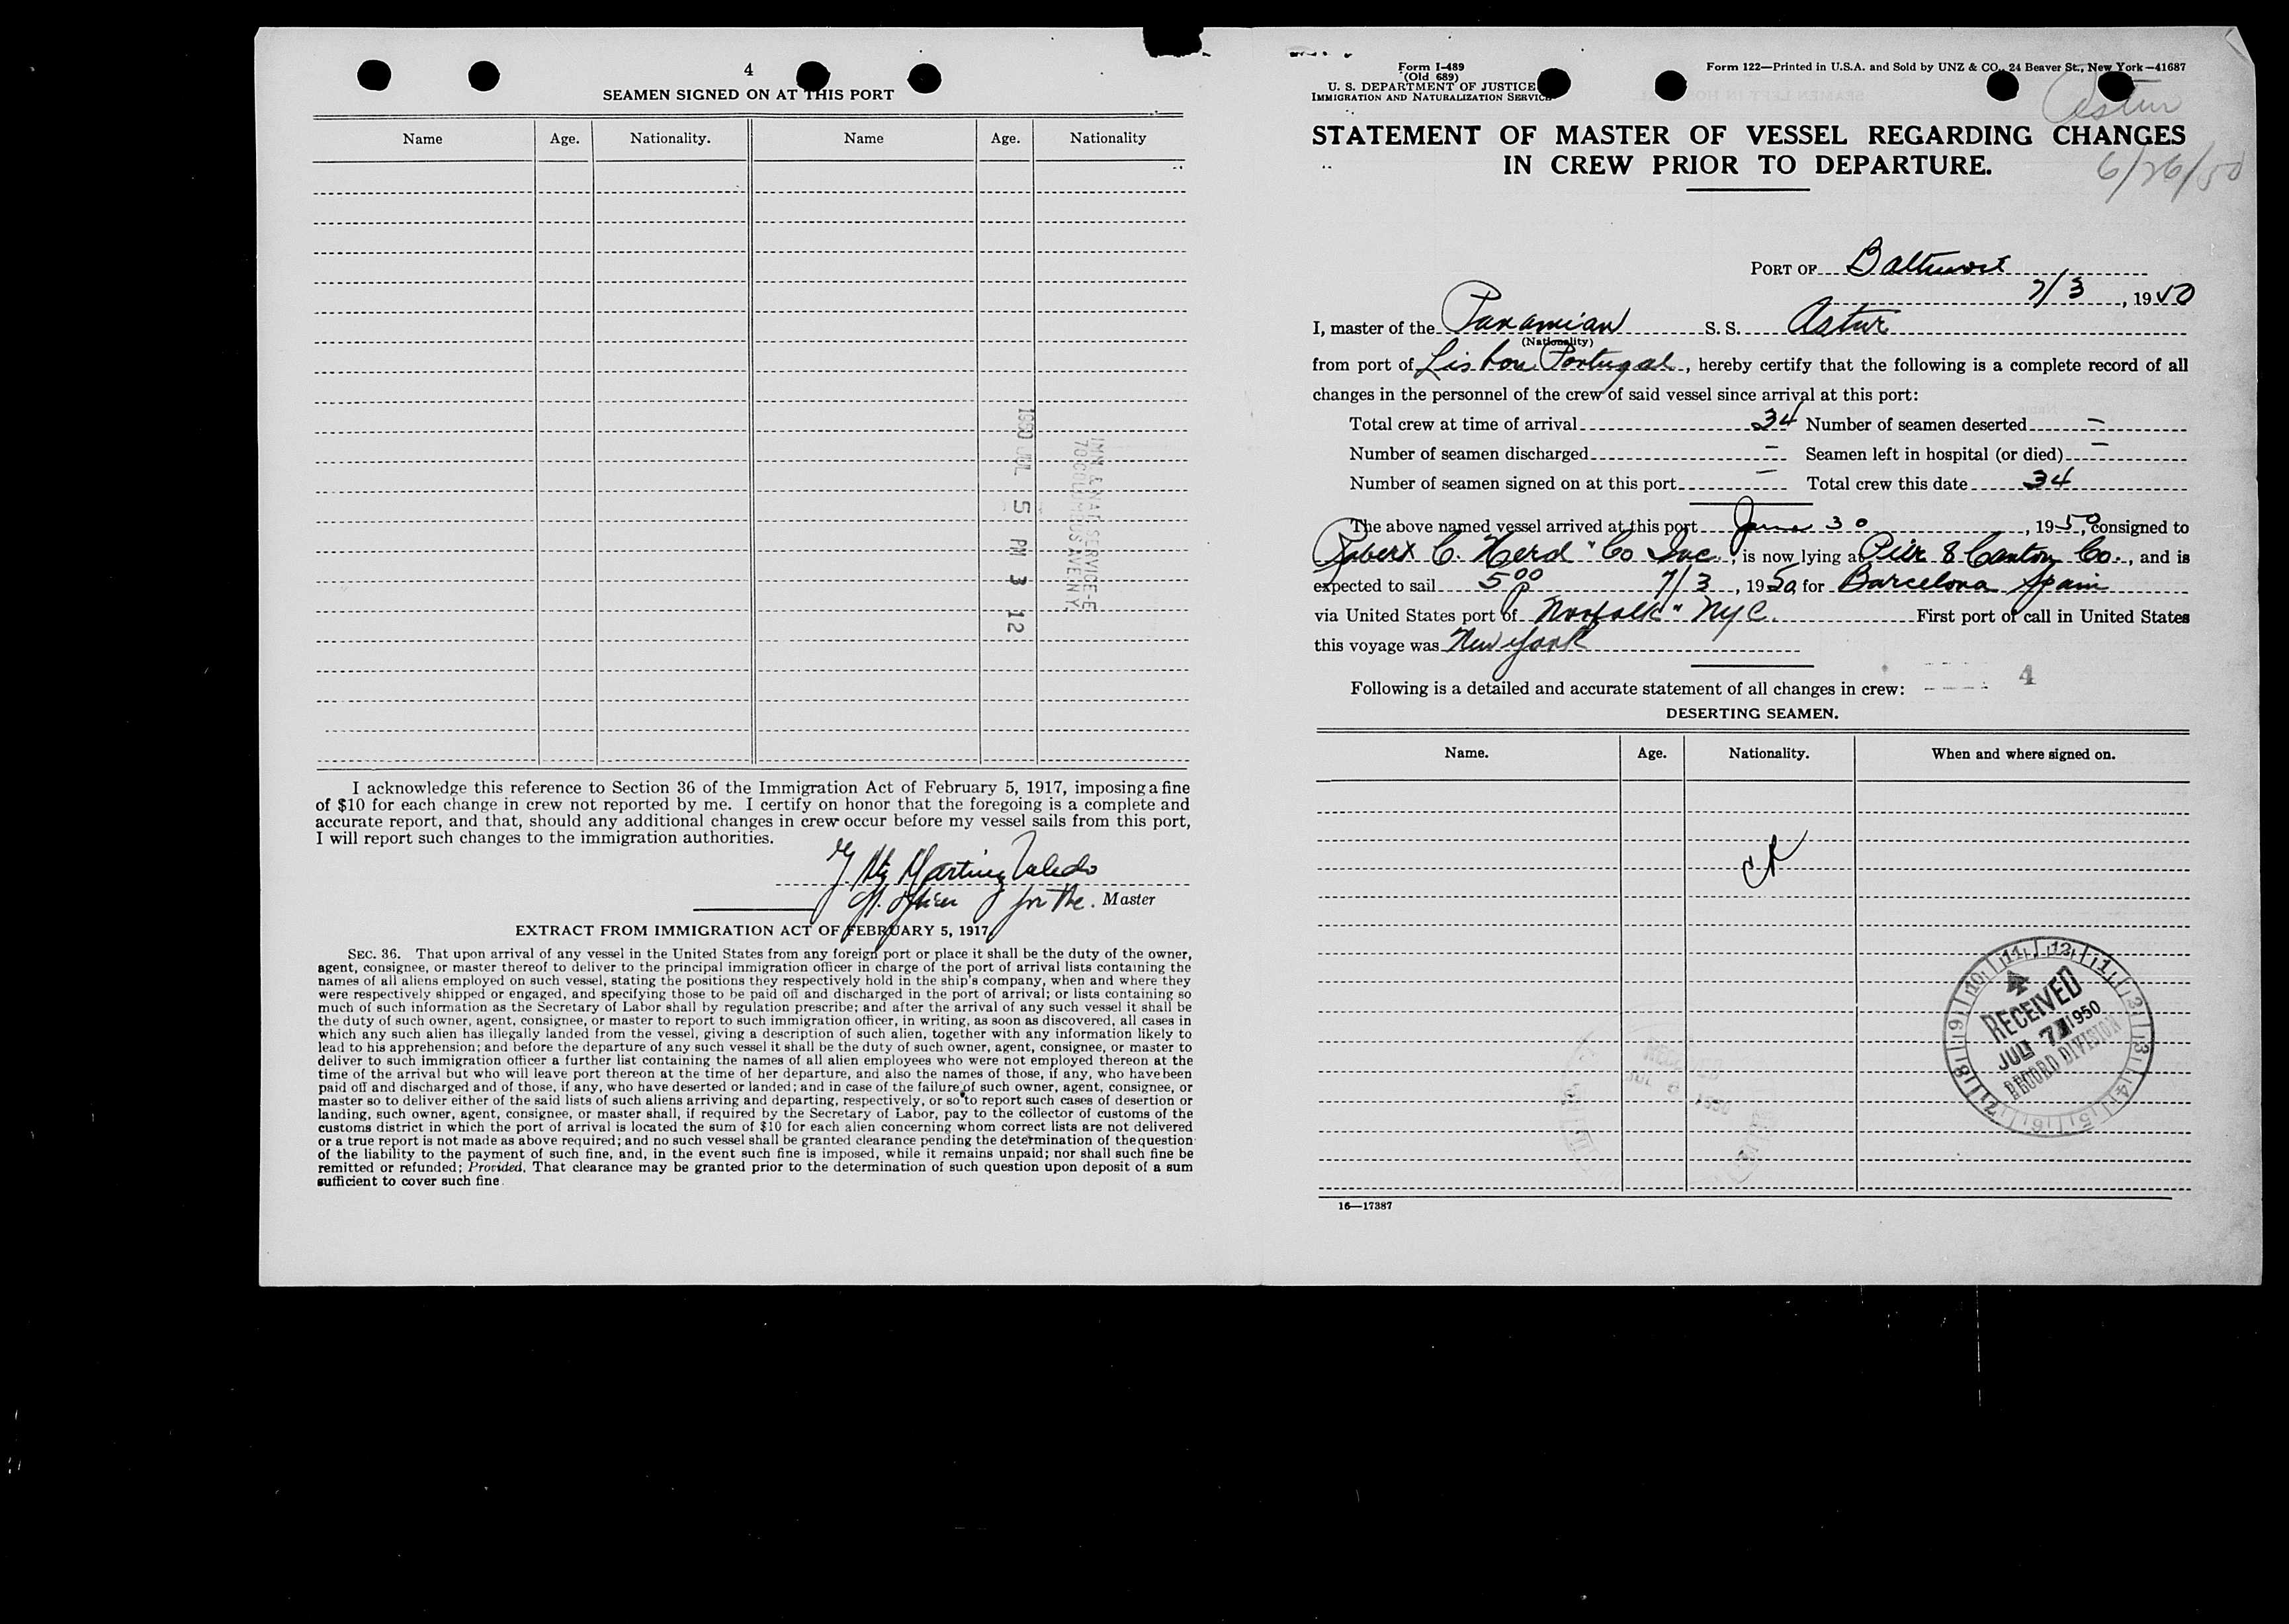 4
SEAMEN SIGNED ON AT THIS PORT
Name Age. Nationality. Name Age. Nationality
1950 JUL 5 PM 3 12
IMM. & NAT. SERVICE-E.
70 COLUMBUS AVE N.Y.
I acknowledge this reference to Section 36 of the Immigration Act of February 5, 1917, imposing a fine
of $10 for each change in crew not reported by me. I certify on honor that the foregoing is a complete and
accurate report, and that, should any additional changes in crew occur before my vessel sails from this port,
I will report such changes to the immigration authorities.
for the. Master
EXTRACT FROM IMMIGRATION ACT OF FEBRUARY 5, 1917
SEC. 36. That upon arrival of any vessel in the United States from any foreign port or place it shall be the duty of the owner,
agent, consignee, or master thereof to deliver to the principal immigration officer in charge of the port of arrival lists containing the
names of all aliens employed on such vessel, stating the positions they respectively hold in the ship's company, when and where they
were respectively shipped or engaged, and specifying those to be paid off and discharged in the port of arrival; or lists containing so
much of such information as the Secretary of Labor shall by regulation prescribe; and after the arrival of any such vessel it shall be
the duty of such owner, agent, consignee, or master to report to such immigration officer, in writing, as soon as discovered, all cases in
which any such alien has illegally landed from the vessel, giving a description of such alien, together with any information likely to
lead to his apprehension; and before the departure of any such vessel it shall be the duty of such owner, agent, consignee, or master to
deliver to such immigration officer a further list containing the names of all alien employees who were not employed thereon at the
time of the arrival but who will leave port thereon at the time of her departure, and also the names of those, if any, who have been
paid off and discharged and of those, if any, who have deserted or landed; and in case of the failure of such owner, agent, consignee, or
master so to deliver either of the said lists of such aliens arriving and departing, respectively, or so to report such cases of desertion or
landing, such owner, agent, consignee, or master shall, if required by the Secretary of Labor, pay to the collector of customs of the
customs district in which the port of arrival is located the sum of $10 for each alien concerning whom correct lists are not delivered
or a true report is not made as above required; and no such vessel shall be granted clearance pending the determination of the question
of the liability to the payment of such fine, and, in the event such fine is imposed, while it remains unpaid; nor shall such fine be
remitted or refunded; Provided, That clearance may be granted prior to the determination of such question upon deposit of a sum
sufficient to cover such fine.
Form I-489
(Old 689)
U. S. DEPARTMENT OF JUSTICE
IMMIGRATION AND NATURALIZATION SERVICE
Form 122—Printed in U.S.A. and Sold by UNZ & CO., 24 Beaver St., New York—41687
Astur
6/26/50
STATEMENT OF MASTER OF VESSEL REGARDING CHANGES
IN CREW PRIOR TO DEPARTURE.
PORT OF Baltimore
7/3, 1950
I, master of the Panamian S. S. Astur
(Nationality)
from port of Lisbon Portugal, hereby certify that the following is a complete record of all
changes in the personnel of the crew of said vessel since arrival at this port:
Total crew at time of arrival 34 Number of seamen deserted –
Number of seamen discharged – Seamen left in hospital (or died) –
Number of seamen signed on at this port – Total crew this date 34
The above named vessel arrived at this port June 30, 1950, consigned to
Robert C. Herd " Co Inc., is now lying at Pier 8 Canton Co., and is
expected to sail 5 00 P 7/3, 1950 for Barcelona Spain
via United States port of Norfolk " NYC. First port of call in United States
this voyage was New York
Following is a detailed and accurate statement of all changes in crew: 4
DESERTING SEAMEN.
Name. Age. Nationality. When and where signed on.
RECEIVED
JUL 7 1950
RECORD DIVISION
16—17387